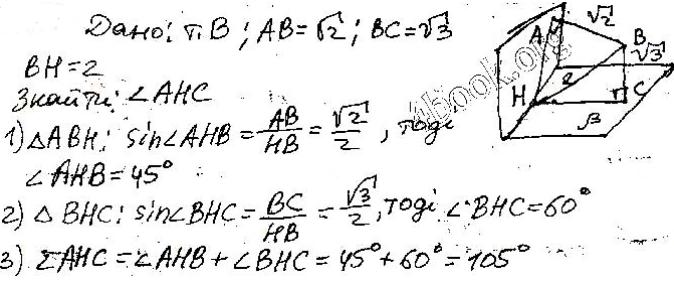 Дано: т. В ; AB=√2 ; BC=√3
BH=2
Знайти: ∠AHC
1) △ABH: sin∠AHB = AB/HB = √2/2 , тоді
∠AHB=45°
2) △BHC: sin∠BHC = BC/HB = √3/2, тоді ∠BHC=60°
3) ∑AHC=∠AHB+∠BHC=45°+60°=105°
A √2 B
√3
2
H C
β
4book.org